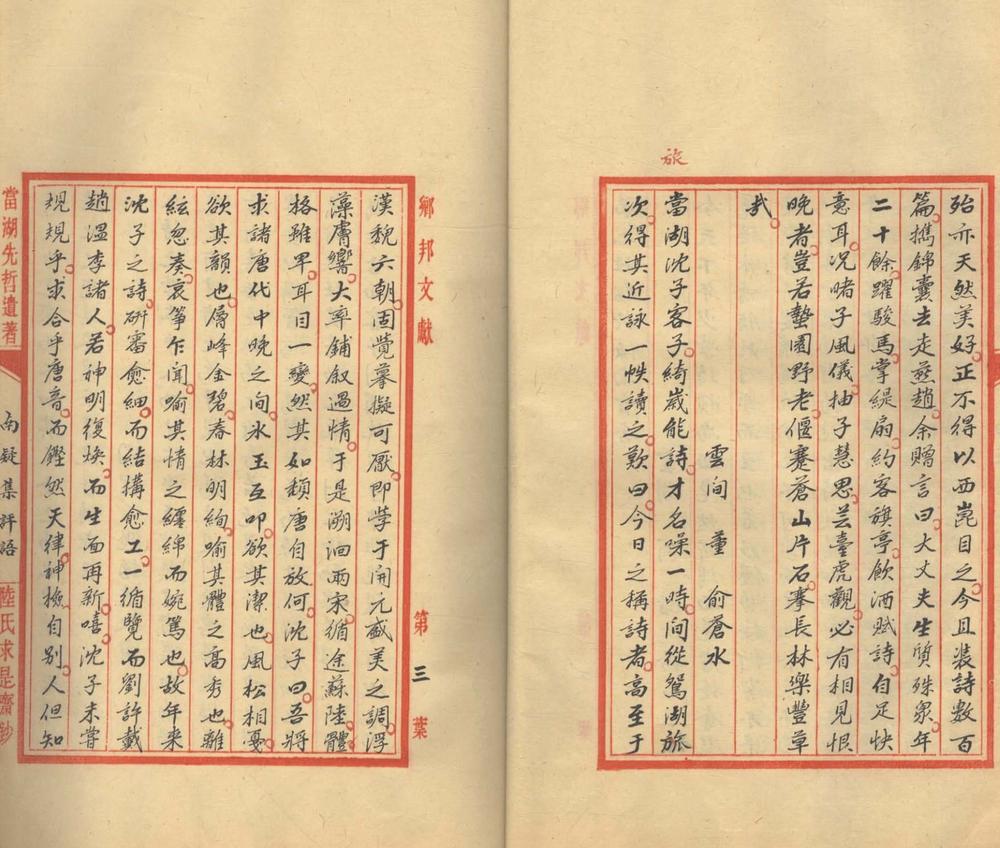 旅
殆亦天然美好正不得以西崑目之今且裝詩數百
篇攜錦囊去走燕趙余贈言曰大丈夫生質殊衆年
二十餘躍駿馬掌緹扇約客旗亭飲酒賦詩自足快
意耳況睹子風儀抽子慧思芸臺虎觀必有相見恨
晚者豈若蟄園野老偃蹇蒼山片石搴長林樂豐草
哉
雲間 董 俞蒼水
當湖沈子客子綺歲能詩才名噪一時間從鴛湖旅
次得其近詠一帙讀之歎曰今日之稱詩者高至于
鄉邦文獻
第三葉
漢魏六朝固覺摹擬可厭即学于開元盛美之調浮
藻膚響大率鋪叙過情于是溯洄兩宋循途蘇陸體
格雖畢耳目一變然其如頹唐自放何沈子曰吾將
求諸唐代中晚之间氷玉互叩欲其潔也風松相戞
欲其韻也層峰金碧春林明絢喻其體之高秀也離
絃忽奏哀箏乍闻喻其情之纏綿而婉篤也故年来
沈子之詩研審愈細而結構愈工一循覽而劉許戴
趙溫李諸人若神明復焕而生面再新嘻沈子未嘗
規規乎求合乎唐音而鏗然天律神撫自别人但知
當湖先哲遺著
南疑集評語
陸氏求是齋鈔